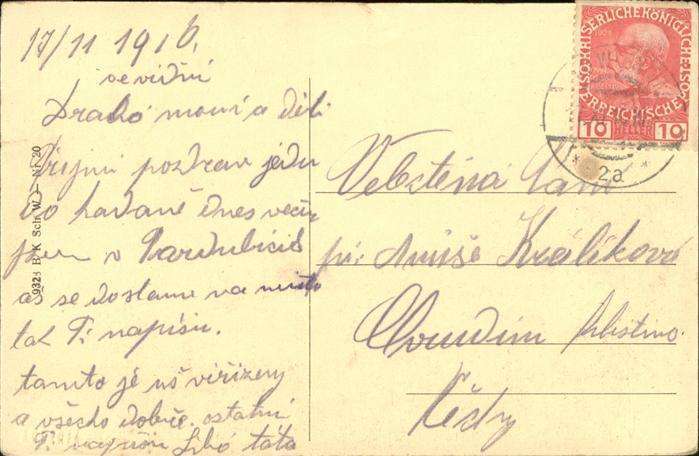 17/11 1916.
ve vídni
Drahó mami a děti
Přijmi pozdrav jedu
do dnes večir
jsem v Pardubicich
až se dostame na místo
tak Ti napíšu.
tamto je uš viřízeny
a všecko dobře. ostatni
Ti napíšu táta
9328 B. K. Sch. W. I Nr 20
KAISERLICHE KÖNIGLICHE
ÖSTERREICHISCHE POST
10 HELLER 10
* 2a *
Velectěná
pí: Aniše Králíkova
Chrudim
Čechy